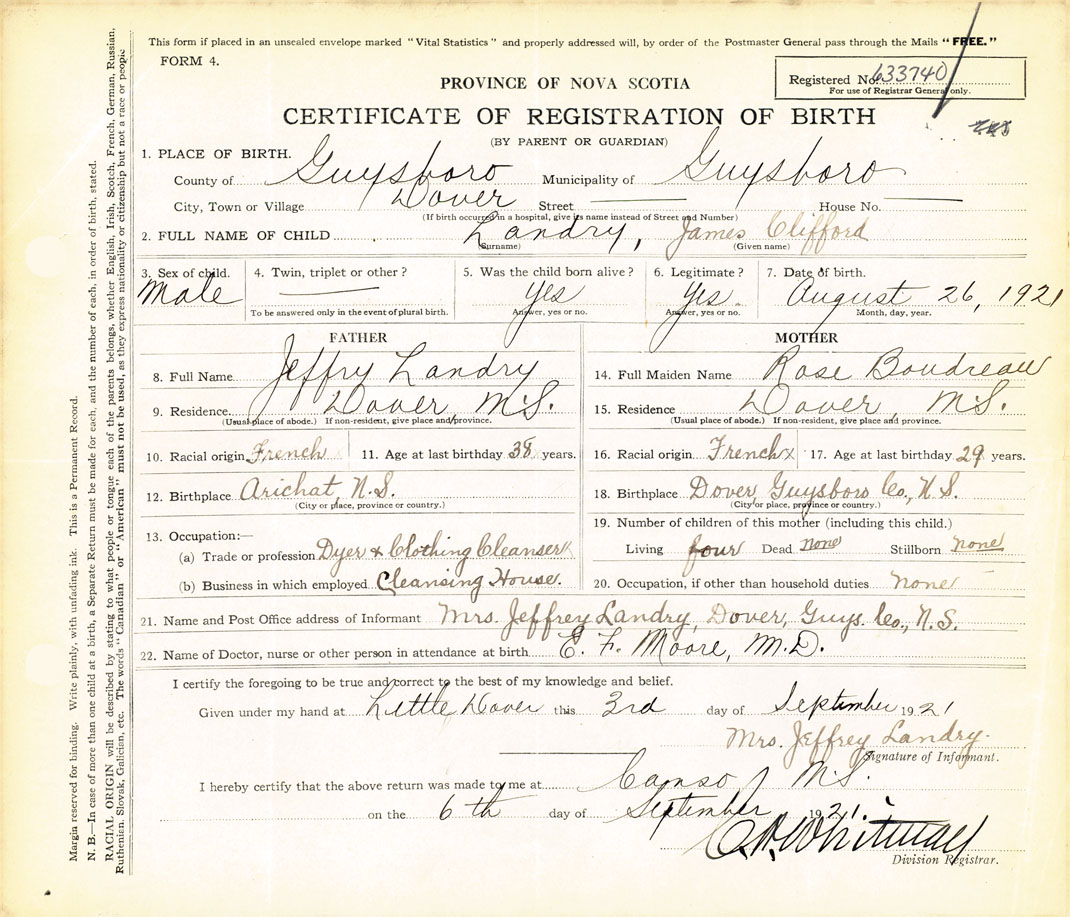 This form if placed in an unsealed envelope marked "Vital Statistics" and properly addressed will, by order of the Postmaster General pass through the Mails "FREE."
FORM 4.
Registered No. 633740
For use of Registrar General only.
PROVINCE OF NOVA SCOTIA
CERTIFICATE OF REGISTRATION OF BIRTH
(BY PARENT OR GUARDIAN)
1. PLACE OF BIRTH.
County of Guysboro Municipality of Guysboro
City, Town or Village Dover Street House No.
(If birth occurred in a hospital, give its name instead of Street and Number)
2. FULL NAME OF CHILD Landry, James Clifford
(Surname) (Given name)
3. Sex of child. 4. Twin, triplet or other? 5. Was the child born alive? 6. Legitimate? 7. Date of birth.
Male Yes Yes. August 26, 1921
To be answered only in the event of plural birth. Answer, yes or no. Answer, yes or no. Month, day, year.
FATHER
8. Full Name Jeffry Landry
9. Residence Dover, N.S.
(Usual place of abode.) If non-resident, give place and province.
10. Racial origin French 11. Age at last birthday 38 years.
12. Birthplace Arichat, N.S.
(City or place, province or country.)
13. Occupation:—
(a) Trade or profession Dyer & Clothing Cleanser
(b) Business in which employed Cleansing House.
MOTHER
14. Full Maiden Name Rose Boudreau
15. Residence Dover, N.S.
(Usual place of abode.) If non-resident, give place and province.
16. Racial origin French 17. Age at last birthday 29 years.
18. Birthplace Dover, Guysboro Co., N.S.
(City or place, province or country.)
19. Number of children of this mother (including this child.)
Living four Dead none Stillborn none
20. Occupation, if other than household duties none
21. Name and Post Office address of Informant Mrs. Jeffrey Landry, Dover, Guys. Co., N.S.
22. Name of Doctor, nurse or other person in attendance at birth E. F. Moore, M.D.
I certify the foregoing to be true and correct to the best of my knowledge and belief.
Given under my hand at Little Dover this 3rd day of September 1921
Mrs. Jeffrey Landry.
Signature of Informant.
I hereby certify that the above return was made to me at Canso, N.S.
on the 6th day of September 1921.
Whitman
Division Registrar.
Margin reserved for binding. Write plainly, with unfading ink. This is a Permanent Record.
N. B.—In case of more than one child at a birth, a Separate Return must be made for each, and the number of each, in order of birth, stated.
RACIAL ORIGIN will be described by stating to what people or tongue each of the parents belongs, whether English, Irish, Scotch, French, German, Russian,
Ruthenian, Slovak, Galician, etc. The words "Canadian" or "American" must not be used, as they express nationality or citizenship but not a race or people